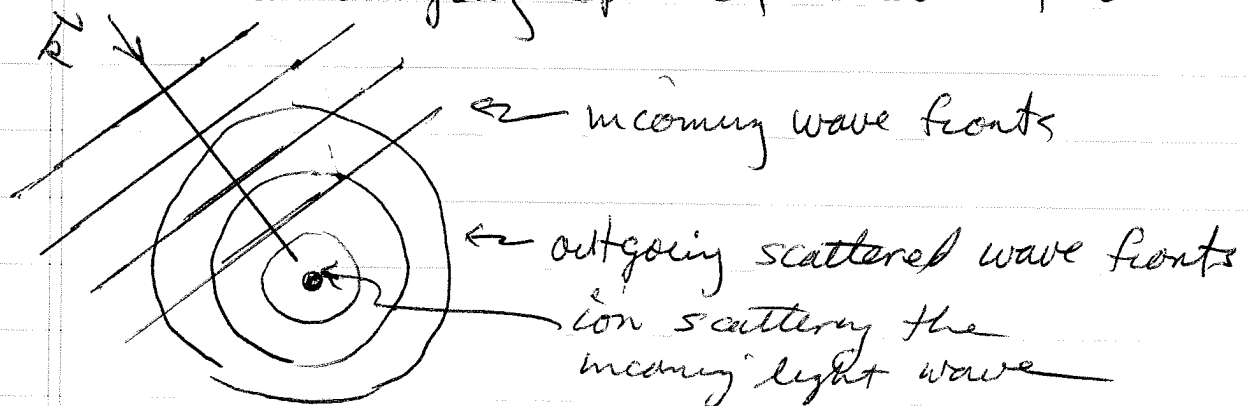 k
← incoming wave fronts
← outgoing scattered wave fronts
ion scattering the
incoming light wave